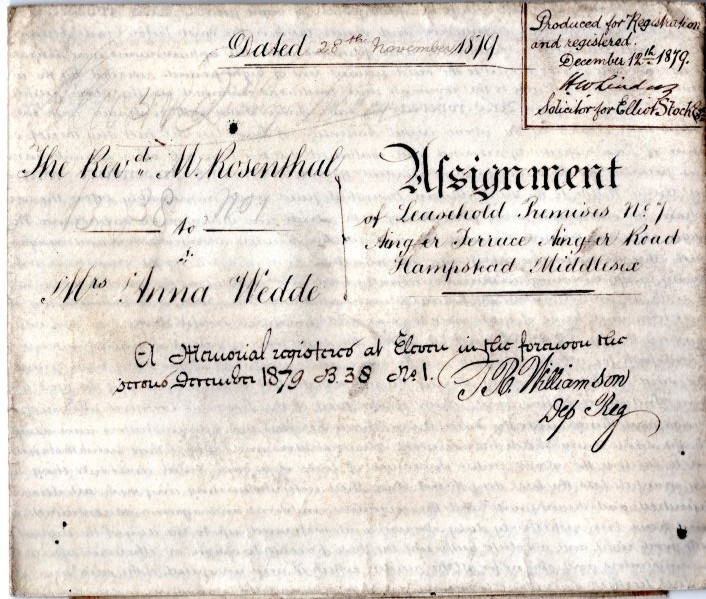 Dated 28th November 1879
Produced for Registration
and registered.
December 12th 1879.
Solicitor for Elliot Stock Esq
The Revd. M. Rosenthal
to
Mrs Anna Wedde
Assignment
of Leasehold Premises No. 7
Ainger Terrace Ainger Road
Hampstead Middlesex
A Memorial registered at Eleven in the forenoon the
second December 1879 B. 38 No 1. T.R. Williamson
Dep Reg